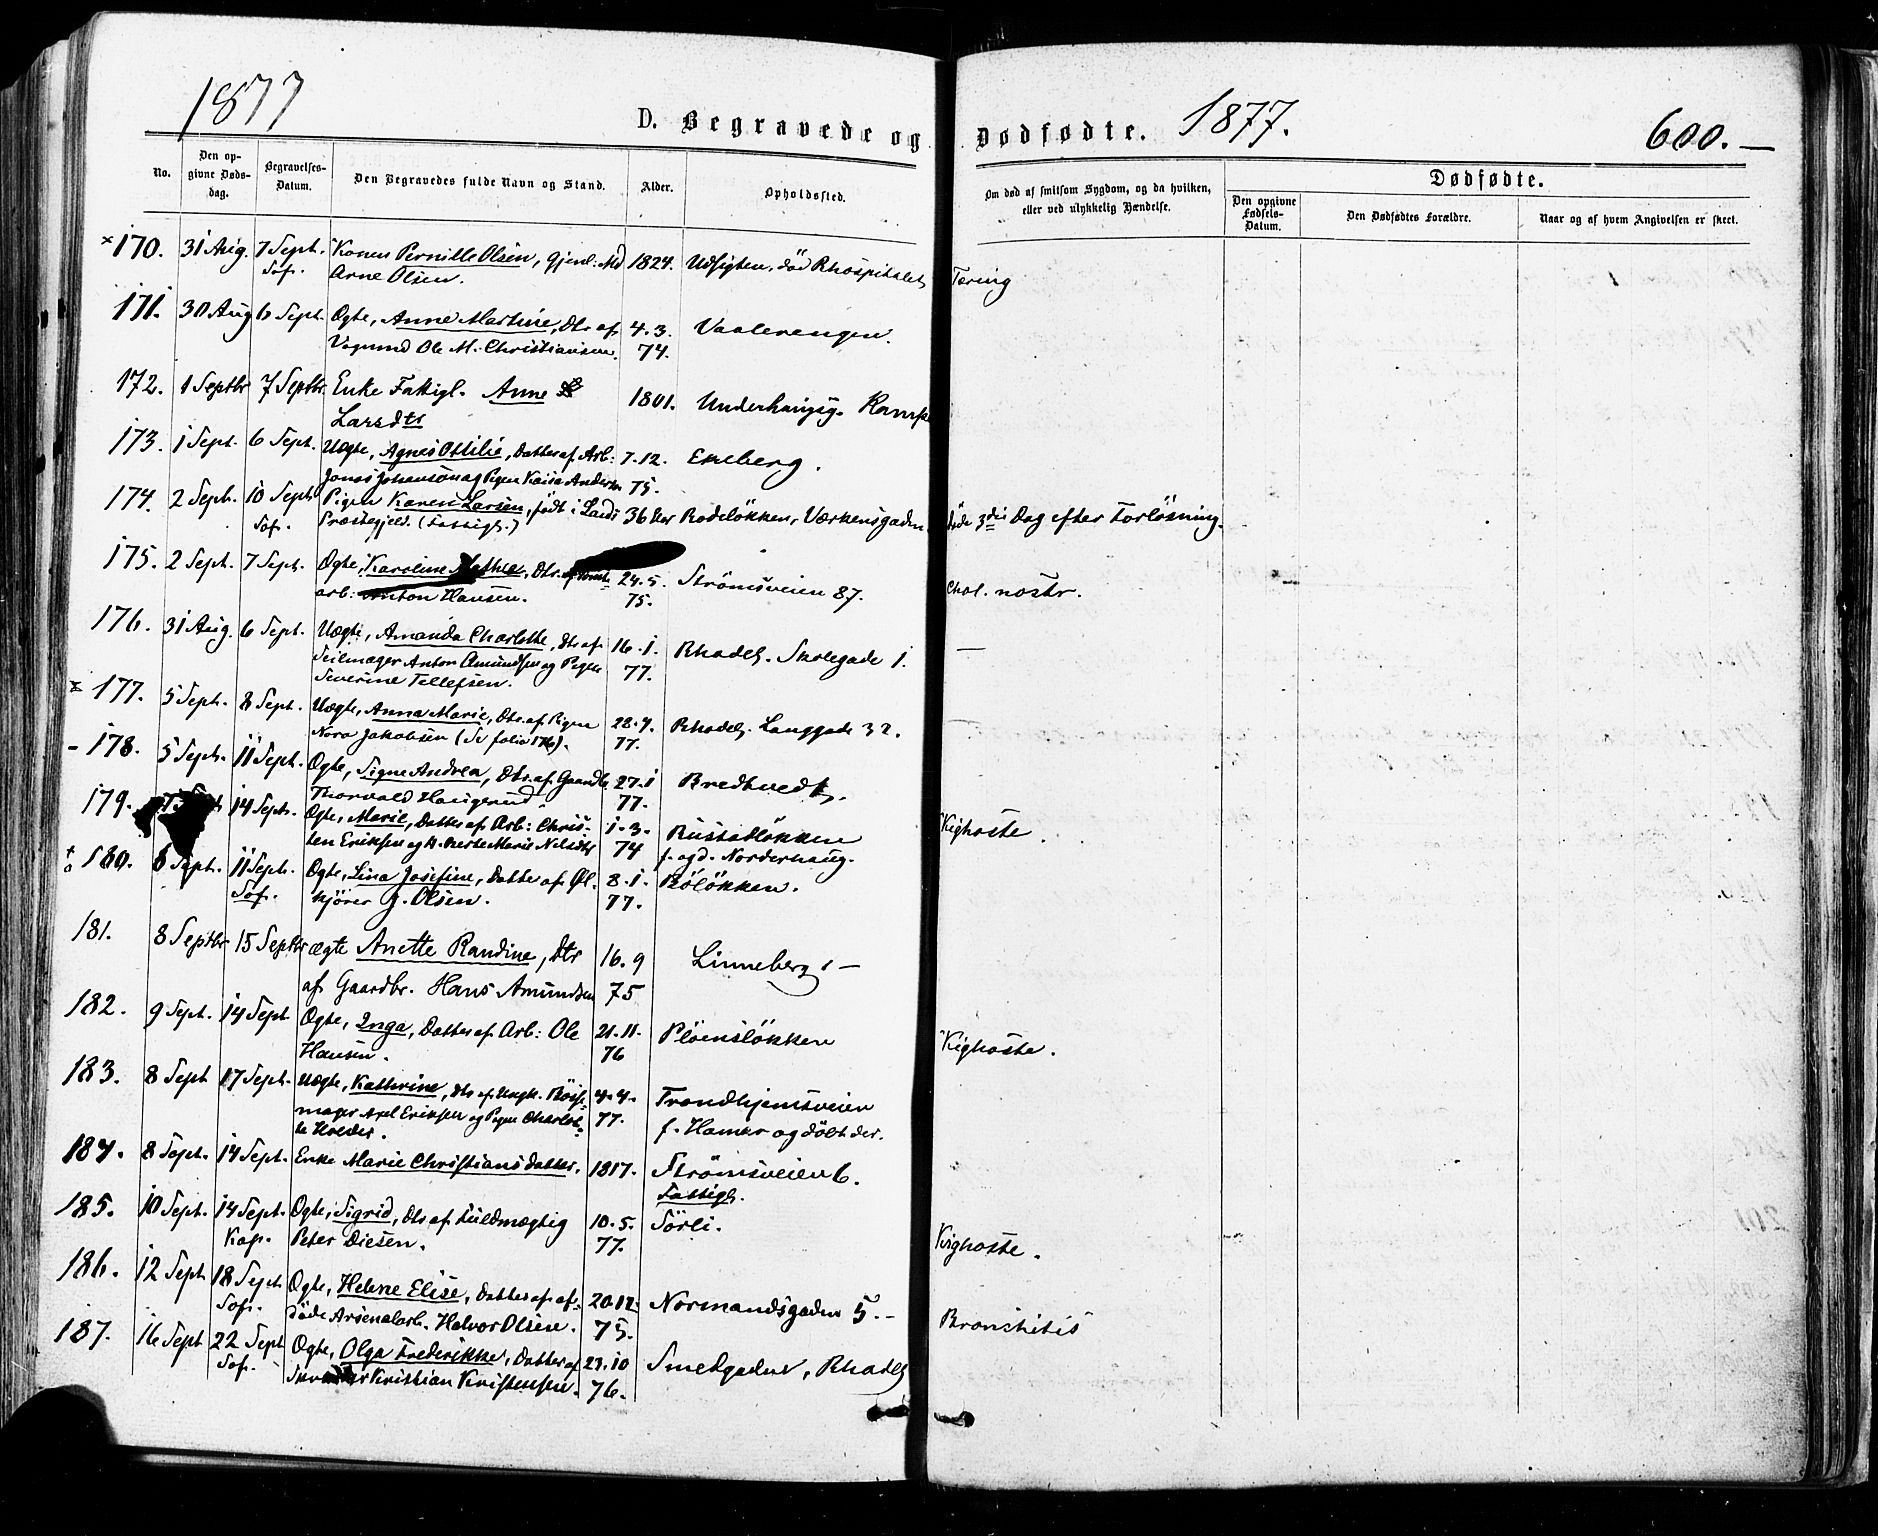 1877
D. Begravede og Dødfødte. 1877. 600.—
No. Den opgivne Dødsdag. Begravelses-Datum. Den Begravedes fulde Navn og Stand. Alder. Opholdssted. Om død af smitsom Sygdom, og da hvilken, eller ved ulykkelig Hændelse. Dødfødte.
Den opgivne Fødsels-Datum. Den Dødfødtes Forældre. Naar og af hvem Angivelsen er skeet.
× 170. 31 Aug. 7 Sept. Konen Pernille Olsen, Gjenl. 1824. Udsigten, død Rhospitalet Tæring
Sof. Arne Olsen.
171. 30 Aug 6 Sept. Ægte, Anne Martine, Dtr af 4.3. Vaalerengen.
Vognmd Ole M. Christiansen. 74.
172. 1 Septbr 7 Septbr. Enke Fattigl. Anne 1801.
Larsdtr
173. 1 Sept. 6 Sept. Uægte, Agnes Ottilie, Datter af Arb: 7.12. Ekeberg.
Jonas Johanson og Pigen Kaisa Anders 75.
174. 2 Sept. 10 Sept Pigen Karen Larsen, født i Lands 36 Aar Rodeløkken, Værkensgaden døde 3die Dag efter Forløsning.
Sof. Præstegjeld. (Fattigl.)
175. 2 Sept. 7 Sept. Ægte, Karoline Mathea, Dtr. af 24.5. Strømsveien 87. Chol. nostr.
arb: Anton Hansen. 75.
176. 31 Aug. 6 Sept. Uægte, Amanda Charlotte, Dtr af 16.1. Rhodel. Skolegade 1. —
Seilmager Anton Amundsen og Pigen 77.
Severine Tellefsen.
× 177. 5 Sept. 8 Sept. Uægte, Anna Marie, Dtr. af Pigen 28.7. Rhodel. Langgade 32.
Nora Jakobsen (Se folio 176). 77.
- 178. 5 Sept. 11 Sept. Ægte, Signe Andrea, Dtr. af Gaardb 27.1 Bredtvedt.
Thorvald Haugerud 77.
179. 14 Sept. Ægte, Marie, Datter af Arb: Chris- 1.3. Rustadløkken Kighoste.
ten Eriksen og Berte Marie Nilsdtr 74 f. og d. Norderhaug.
180. 8 Sept. 11 Sept. Ægte, Lina Josefine, Datte af Øl- 8.1. Røløkken.
Sof. kjører J. Olsen. 77.
181. 8 Septbr 15 Septbr ægte Anette Randine, Dtr 16.9 Linneberg —
af Gaardbr. Hans Amundsen 75
182. 9 Sept. 14 Sept Ægte, Inga, Datter af Arb: Ole 21.11. Pløensløkken Kighoste.
Hansen. 76
183. 8 Sept 17 Sept. Uægte, Kathrine, Dtr af Ungk. 4.4. Trondhjemsveien
mager Axel Eriksen og Pigen Charlot- 77. f. Hamar og døbt der.
te Holder.
184. 8 Sept. 14 Sept. Enke Marie Christiansdatter. 1817. Strømsveien 6.
Fattigl.
185. 10 Sept. 14 Sept. Ægte, Sigrid, Dtr af Fuldmægtig 10.5. Sørli. Kighoste.
Kap. Peter Diesen. 77.
186. 12 Sept 18 Sept Ægte, Helene Elise, Datter af af- 20.12. Normandsgaden 5.— Bronchitis
Sof. døde Arsenalarb. Halvor Olsen. 75.
187. 16 Sept 22 Sept Ægte, Olga Frederikke, Datter af 23.10 Smedgaden, Rhodel
Sof. Skrædder Kristian Kristensen. 76.